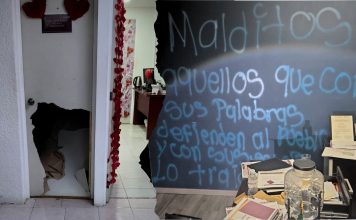 Malditos
aquellos que con
sus Palabras
defienden al Pueblo
y con sus
lo tra